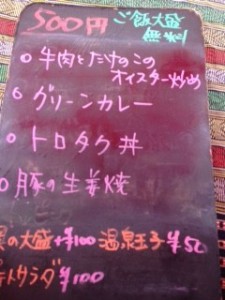 500円 ご飯大盛
無料
牛肉とたけのこの
オイスター炒め
グリーンカレー
トロタク丼
豚の生姜焼
の大盛+¥100 温泉玉子¥50
サラダ¥100